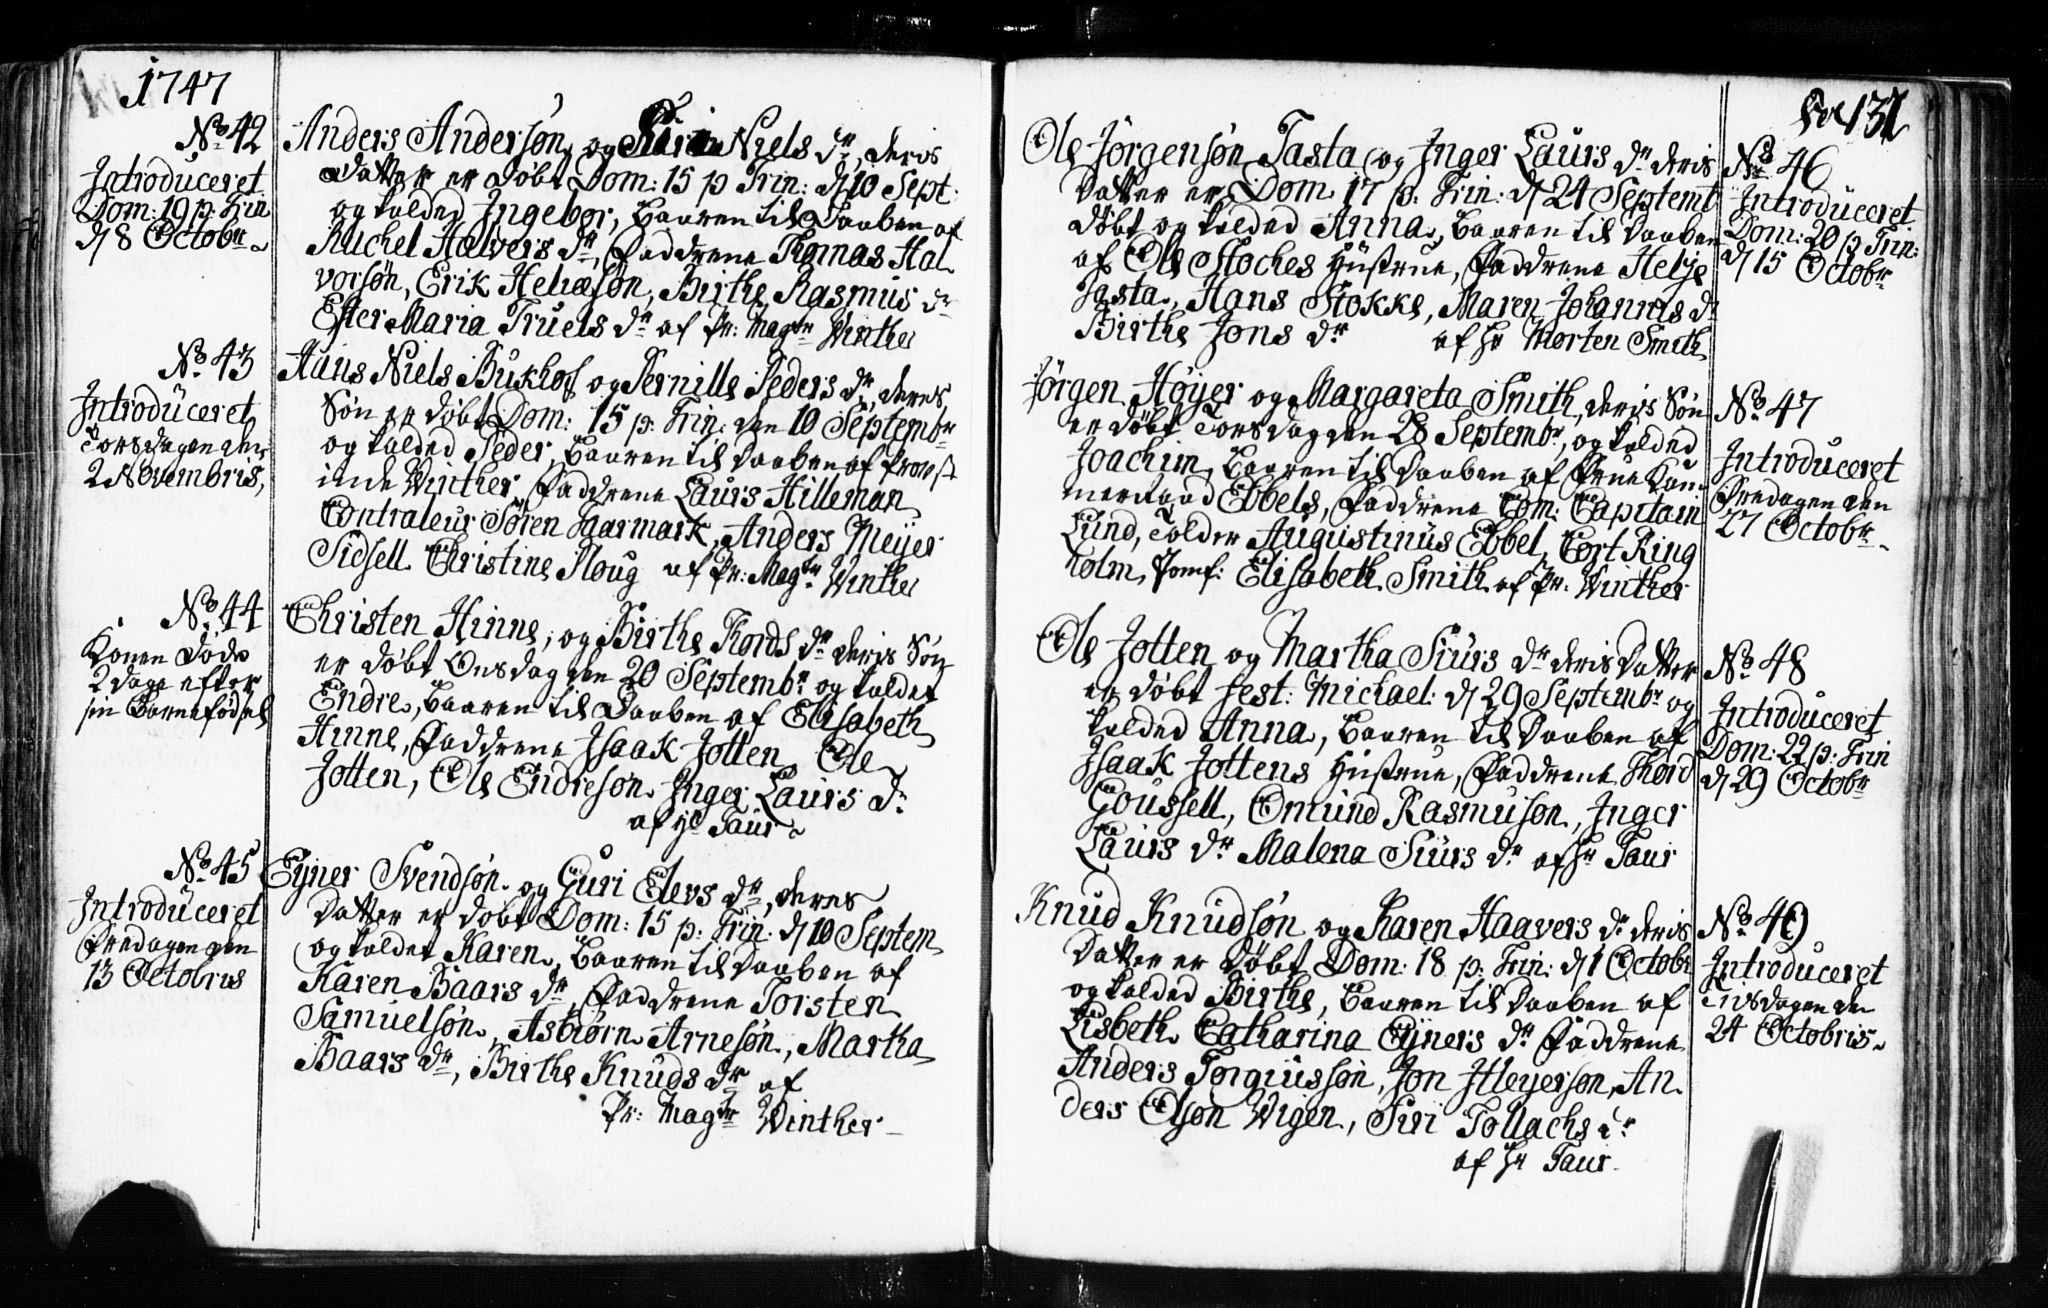 1747
No 42
Introduceret
Dom: 19 p: Trin
d 8 Octobr
Anders Andersøn og Niels dr, deris
datter er døbt Dom: 15 p Trin: d 10 Sept:
og kalded Ingebor, baaren til Daaben af
Rachel Halvers dr, Faddrene Thomas Hal
vorsøn, Erik Heliæsøn, Birthe Rasmus dr
Ester Maria Truels dr af Pr: Magr Winther
No 43
Introduceret
Torsdagen den
2 Novembris,
Hans Niels Bukhof og Pernille Peders dr, deres
Søn er døbt Dom: 15 p: Trin: den 10 Septembr
og kalded Peder, baaren til Daaben af Provst
inde Winther, Faddrene Laurs Hilleman
Contraleur Søren Haarmark, Anders Meyer
Sidsell Christine Ploug af Pr: Magr Winther
No 44
Konen døde
2 dage efter
sin Barnefødsel
Christen Hinne, og Birthe Thords dr deris Søn
er døbt Onsdag den 20 Septembr og kaldet
Endre, baaren til Daaben af Elisabeth
Hinne, Faddrene Isaak Jotten, Ole
Jotten, Ole Endresøn, Inger Laurs dr
af Hr Taur
No 45
Introduceret
Fredagen den
13 Octobris
Ejner Svendsøn og Guri Elevs dr, deres
Datter er døbt Dom: 15 p: Trin: d 10 Septem
og kaldet Karen, baaren til Daaben af
Karen Baars dr, Faddrene Torsten
Samuelsøn, Asbiørn Arnesøn, Martha
Baars dr, Birthe Knuds dr af
Pr: Magr Winther
137
Ole Jørgensøn Tasta og Inger Laurs dr deris
Datter er Dom. 17 p. Trin: d 24 Septemt
døbt og kalded Anna, baaren til Daaben
af Ole Stockes Hüstrue, Faddrene Helje
Tasta, Hans Stokke, Maren Johannis dr
Birthe Jons dr af Hr Morten Smith
No 46
Introduceret
Dom: 20 p Trin:
d 15 Octobr
Jørgen Høyer og Margareta Smith, deris Søn
er døbt Torsdag den 28 Septembr, og kalded
Joachim, baaren til Daaben af Frue Kam
merraad Ebbels, Faddrene Com: Capitain
Lund, Tolder Augustinus Ebbel, Cort Ring
holm, Jomf: Elisabeth Smith af Pr: Winther
No 47
Introduceret
Fredagen den
27 Octobr
Ole Jotten og Martha Siurs dr deris Datter
er døbt Fest: Michael: d 29 Septembr og
kalded Anna, baaren til Daaben af
Isaak Jottens Hustrue, Faddrene Thord
Goussell, Omund Rasmusøn, Inger
Laurs dr Malena Siurs dr af Hr Taur
No 48
Introduceret
Dom: 22 p: Trin
d 29 Octobr
Knud Knudsøn og Karen Haavers dr deris
Datter er døbt Dom: 18 p: Trin: d 1 Octobr
og kalded Birthe, baaren til Daaben af
Lisbeth Catharina Ejners dr Faddrene
Anders Torgiussøn, Jon Itlejersøn, An
ders Olsøn Wigen, Siri Tollachs dr
af Hr Taur
No 49
Introduceret
Tirsdagen den
24 Octobris